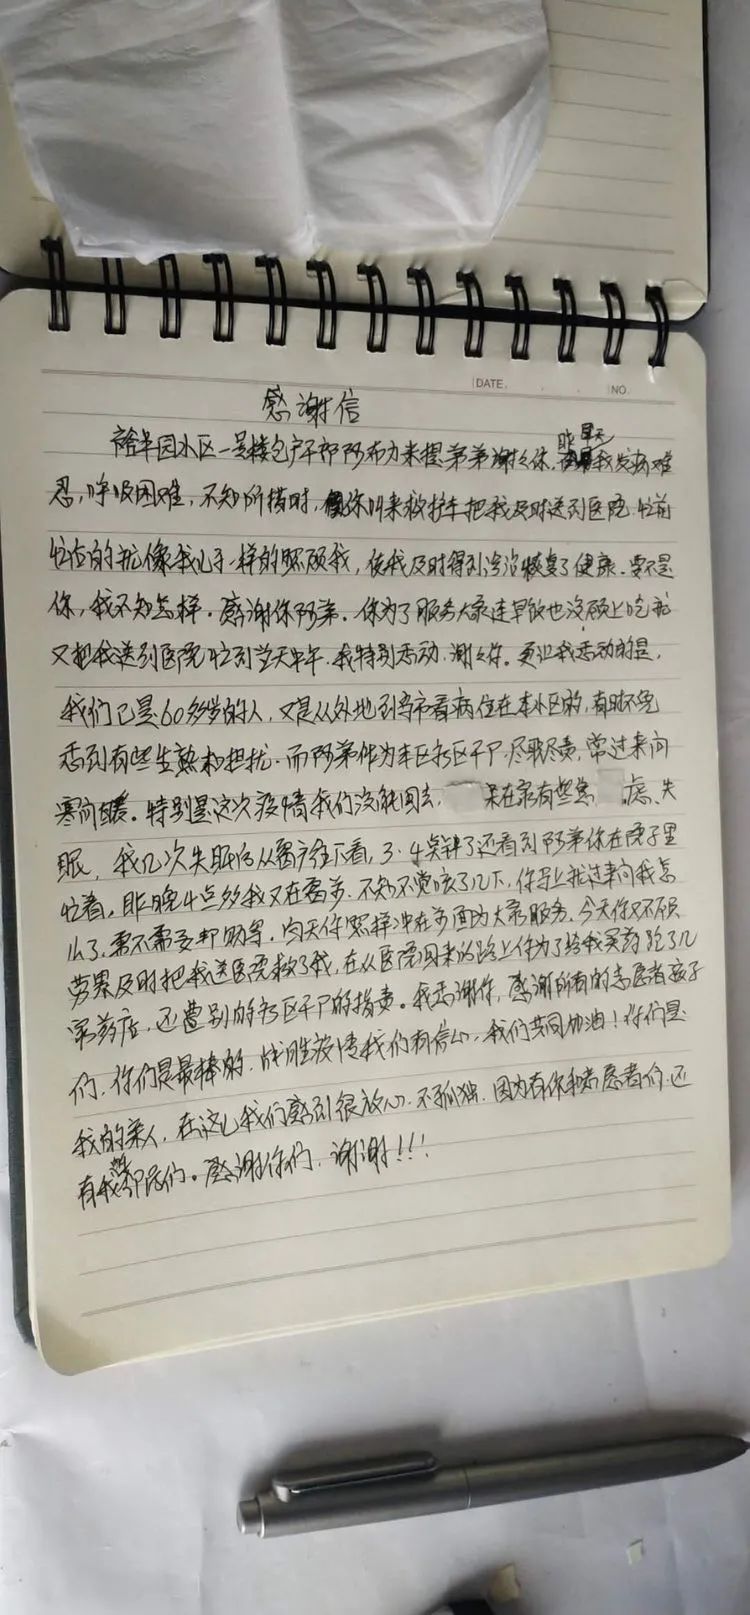 DATE. . . NO.
感谢信
园小区一号楼包户干部阿布力来提弟弟谢谢你.昨早天我发病难
忍,呼吸困难,不知所措时,你叫来救护车把我及时送到医院.忙前
忙后的扰像我儿子一样的照顾我,使我及时得到治疗恢复了健康.要不是
你,我不知怎样.感谢你阿弟.你为了服务大家连早饭也没顾上吃就
又把我送到医院忙到当天中午.我特别感动.谢谢你.更让我感动的是,
我们已是60多岁的人,又是从外地到乌市看病住在本小区的,有时不免
感到有些生熟和担忧.而阿弟作为本区社区干户.尽职尽责,常过来问
寒问暖.特别是这次疫情我们没能回去, 呆在家有些焦 虑、失
眠,我几次失眠后从窗户往下看,3.4点钟了还看到阿弟你在院子里
忙着,昨晚4点多我又在窗旁.不知不觉咳了几下,你马上就过来问我怎
么了.需不需要帮助等.白天你照样冲在前面为大家服务.今天你又不顾
劳累及时把我送医院救了我,在从医院回来的路上你为了给我买药跑了几
家药店,还遭别的社区干户的指责。我感谢你,感谢所有的志愿者孩子
们.你们是最棒的.战胜疫情我们有信心.我们共同加油!你们是
我的亲人,在这儿我们感到很放心.不孤独.因为有你和志愿者们.还
有我邻居们。感谢你们.谢谢!!!